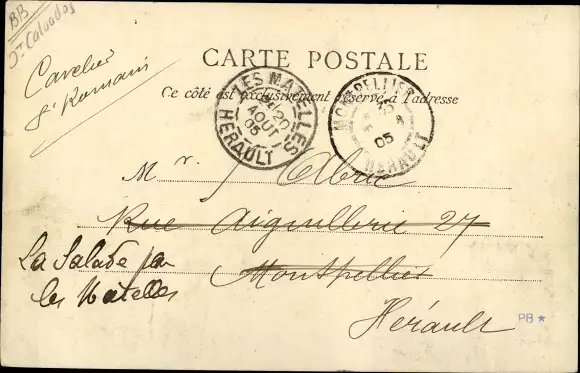 BB
Jn Calvados
Cavelier
St Romain
CARTE POSTALE
Ce côté est exclusivement réservé à l'adresse
LES MATELLES
20
AOUT
05
HERAULT
MONTPELLIER
8
05
HERAULT
Mr. J Abric
Rue Aiguillerie 27
La Salade par
Montpellier
les Matelles
Hérault
PB ★